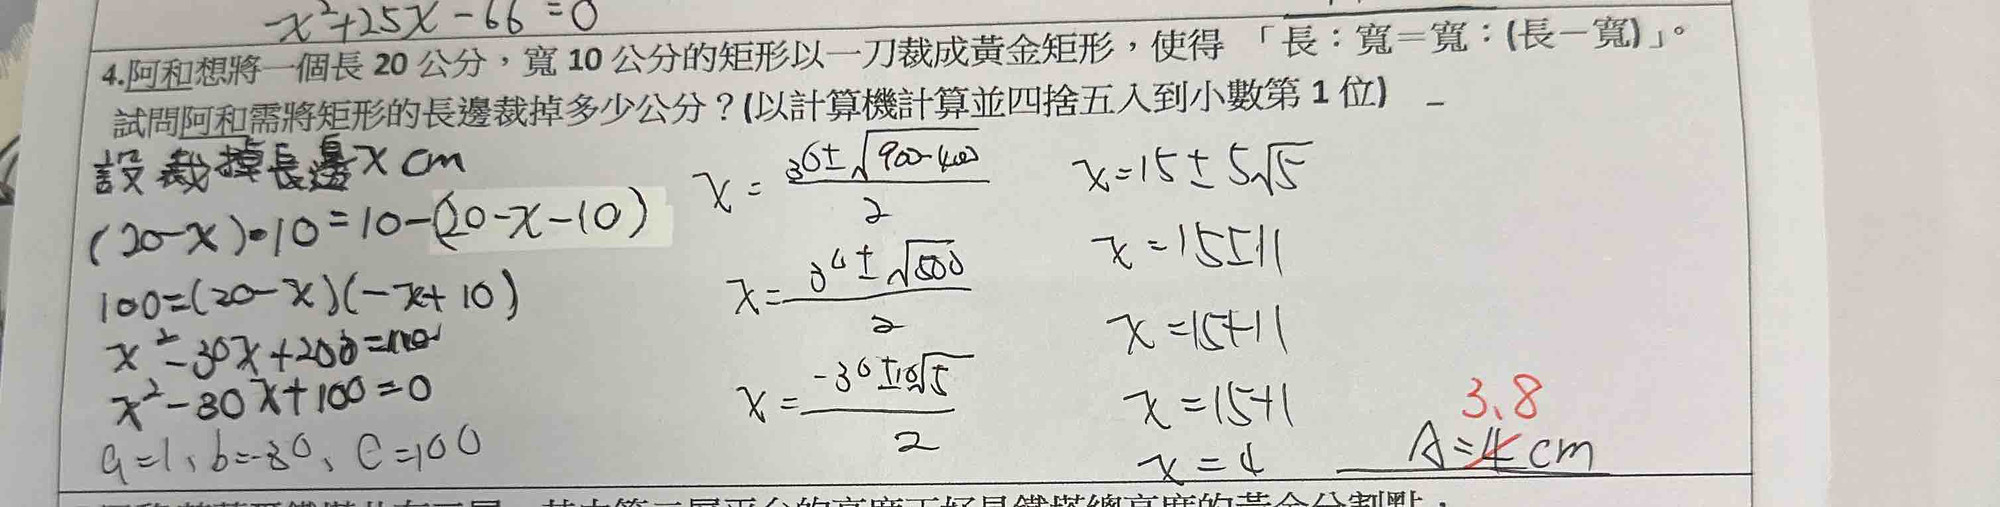 -x²+25x-66=0
4.阿和想將一個長 20 公分，寬 10 公分的矩形以一刀裁成黃金矩形，使得 「長：寬＝寬：(長－寬)」。
試問阿和需將矩形的長邊裁掉多少公分？(以計算機計算並四捨五入到小數第 1 位)
設裁掉長邊x cm
(20-x)•10=10-(20-x-10)
100=(20-x)(-x+10)
x²-30x+200=100
x²-30x+100=0
a=1、b=-30、c=100
x=30±√900-400/2
x=30±√500/2
x=-30±10√5/2
x=15±5√5
x=15±11
x=15+11
x=15+1
x=4
3.8
A=4cm